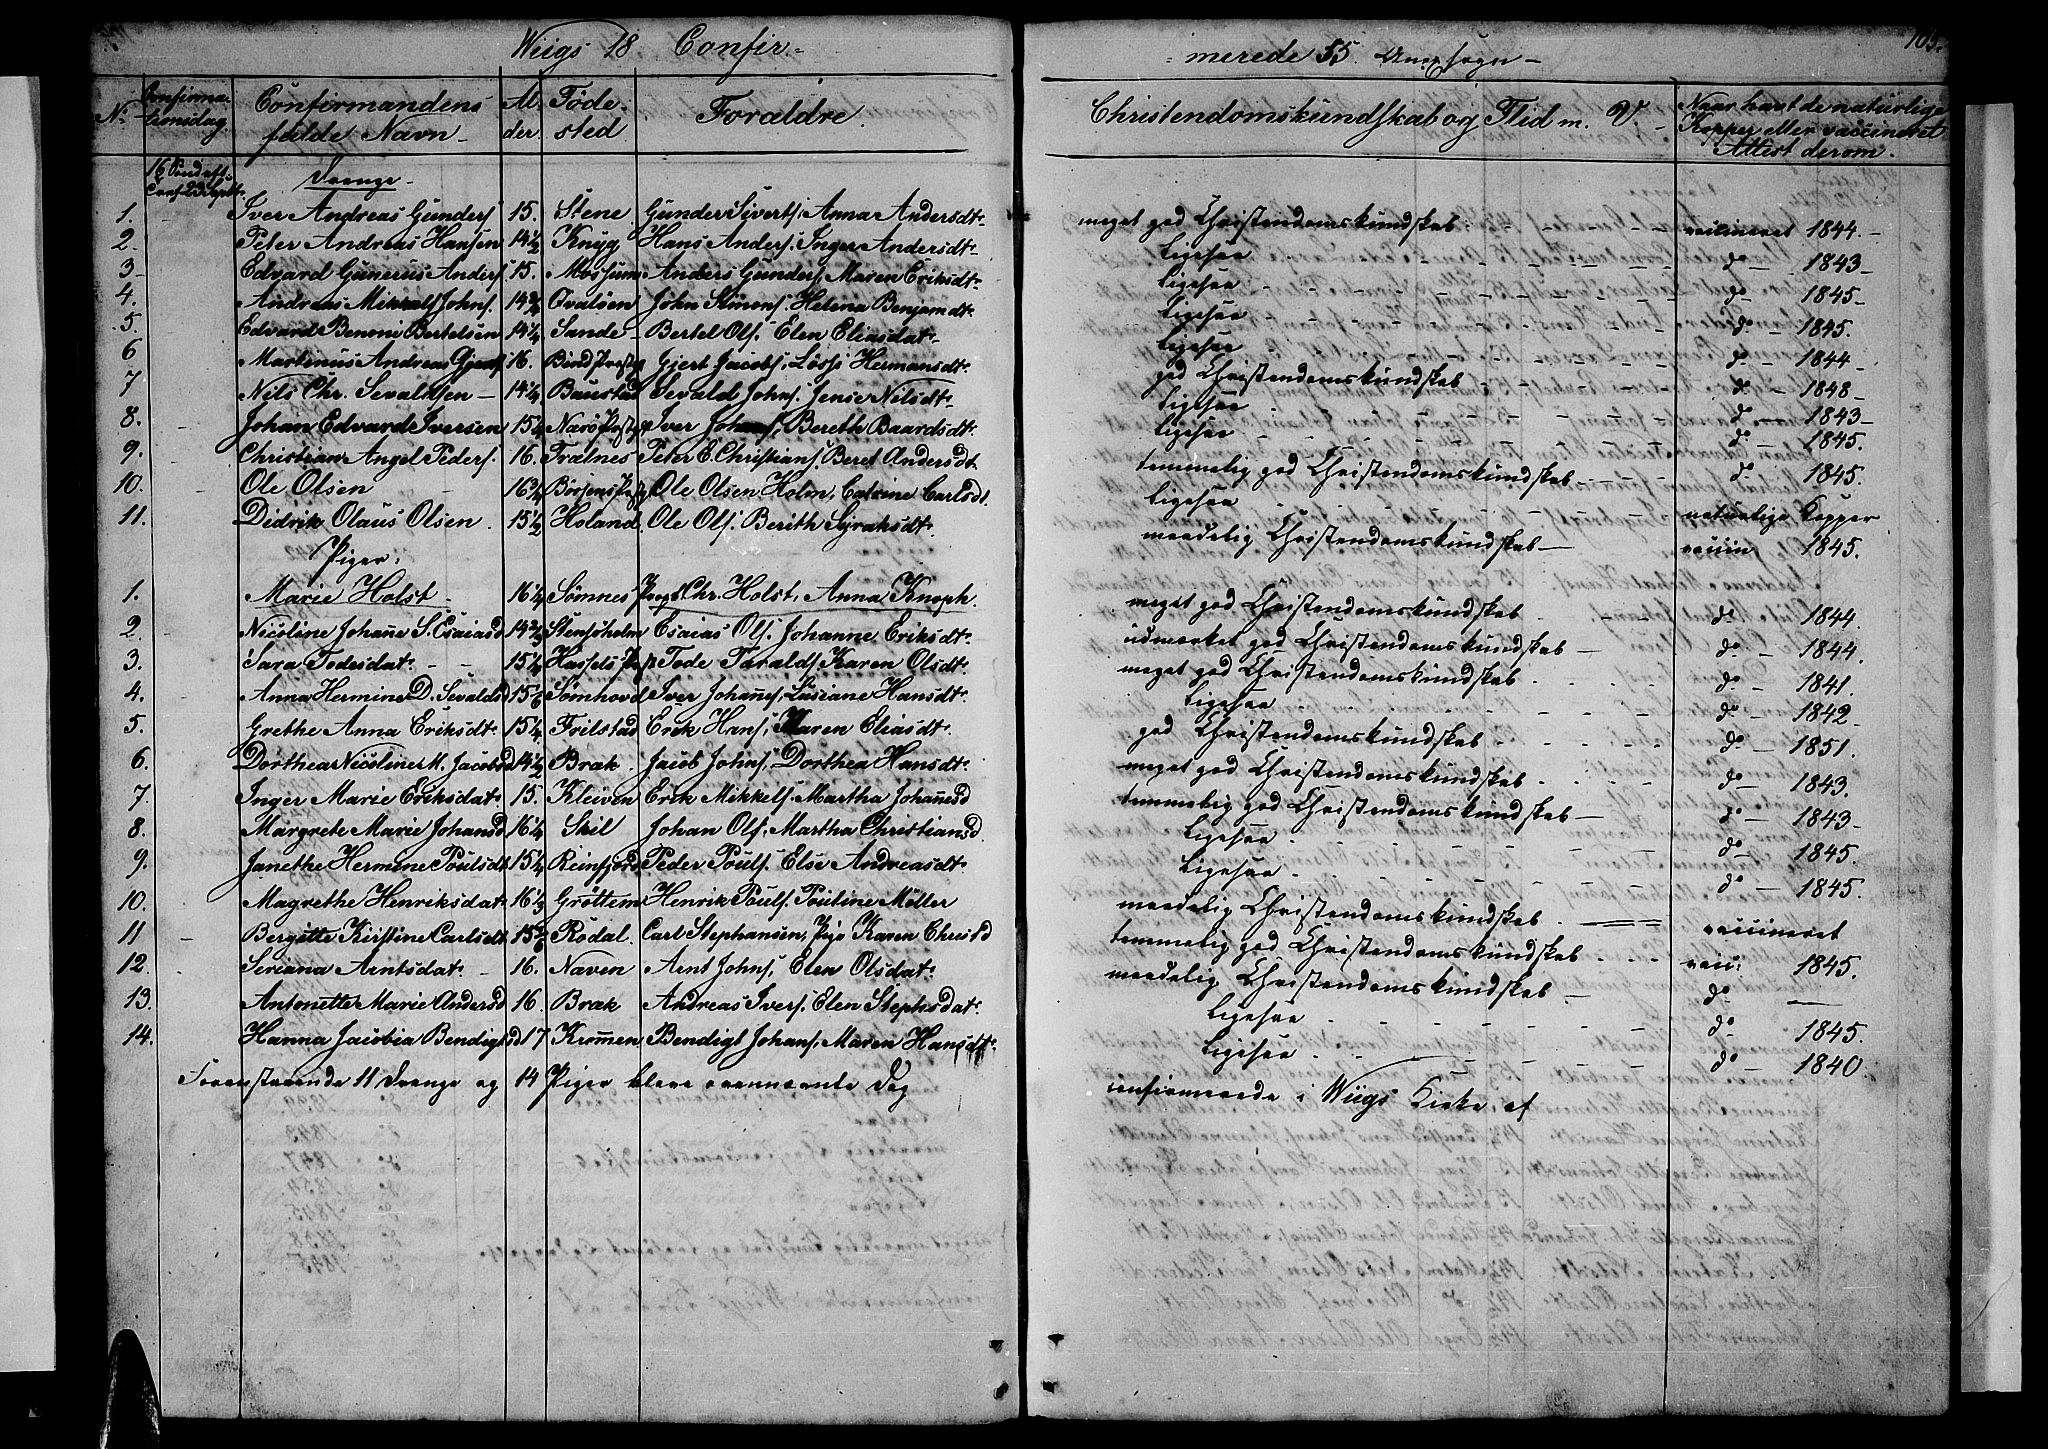 Wiigs 18 Confir-
No. Confirmationsdag. Confirmandens fulde Navn Alder Födested Forældre.
16 Sönd. eft. Conf. 23 Septbr. Drenge.
1. Iver Andreas Gunders. 15. Stene. Gunder Siverts. Anna Andersdt.
2. Peter Andreas Hansen 14 1/2 Knyg, Hans Anders. Inger Andersdt.
3 Edvard Gunerus Anders. 15. Mosum Anders Gunders. Maren Eriksdt.
4. Andreas Mikkels Johns. 14 3/4 John Simons. Helena Benjamdt.
5. Edvard Benoni Bertelsen 14 1/4 Sande Bertel Ols. Elen Eliasdat.
6 Martinus Andreas 16. Gjert Jacobs. Hermansdt.
7 Nils Chr. Sevaldsen 14 1/4 Baustad Sevald Johns. Jense Nilsdt.
8. Johan Edvard Iversen 15 1/4 Nærö Prstgj. Iver Johans. Bereth Baardsdt.
9. Christian Angel Peders. 16. Trælnes Peter E. Christians. Beret Andersdt.
10. Ole Olsen 16 3/4 Ole Olsen Holm, Catrine Carlsdt.
11. Didrik Olaus Olsen. 15 1/2 Holand. Ole Ols. Berith Syraksdt.
Piger:
1. Marie Holst 16 1/4 Sömnes Chr. Holst, Anna Knoph.
2. Nicoline Johañe S. Esaiasd 14 3/4 Stensöholm Esaias Ols. Johanne Eriksdt.
3. Sara Todesdat. 15 1/4 Hassels Tode Taralds. Karen Olsdt.
4. Anna Hermine D. Sevaldsd 15 Sömhovd Iver Johañes. Lusiane Hansdt.
5. Grethe Anna Eriksdt. 15 1/4 Frilstad Erik Hans. Maren Eliasdt.
6. Dorthea Nicoline M. Jacobsd 14 1/2 Bræk. Jacob Johns. Dorthea Hansdt.
7. Inger Marie Eriksdat. 15. Kleiven Erik Mikkels. Martha Johañesd
8. Margrete Marie Johansd 16 1/4 Skil Johan Ols, Martha Christiansd.
9. Janethe Hermine Poulsdt. 15 1/4 Reinfjord Peder Pouls. Else Andreasdt.
10. Magrethe Henriksdat. 16 1/3 Gröttem Henrik Pouls. Poutine Möller
11 Bergitte Kirstine Carlsdt. 15 Rödal. Carl Stephansen, Pige Karen Christd
12. Seriana Arntsdat. 16. Naven Arnt Johns, Elen Olsdat.
13. Antonette Marie Andersd 16. Bræk Andreas Ivers. Elen Stephsdat.
14. Hanna Jacobia Bendigtsd 17 Kromen Bendigt Johans, Maren Hansdt.
Foranstaaende 11 Drenge og 14 Piger bleve ovennævnte Dag
105.
merede 55. Annexsogn
Christendomskundskab og Flid m. V. Naar havt de naturlige Kopper eller vaccineret Attest derom.
meget god Christendomskundskab vaccineret 1844.
Ligesaa do 1843
Ligesaa do 1845
Ligesaa do 1845.
Ligesaa do 1844
god Christendomskundskab do 1848
Ligesaa do 1843
Ligesaa do 1845.
temmelig god Christendomskundskab do 1845.
Ligesaa naturlige Kopper
maadelig Christendomskundskab vaccin 1845.
meget god Christendomskundskab do 1844.
udmærket god Christendomskundskab do 1844.
meget god Christendomskundskab do 1841.
Ligesaa do 1842
god Christendomskundskab do 1851.
meget god Christendomskundskab do 1843.
temmelig god Christendomskundskab do 1843
Ligesaa do 1845.
Ligesaa do 1845.
maadelig Christendomskundskab vaccineret
temmelig god Christendomskundskab vacc: 1845.
maadelig Christendomskundskab do
Ligesaa do 1845.
Ligesaa do 1840.
confirmerede i Wiigs Kirke af